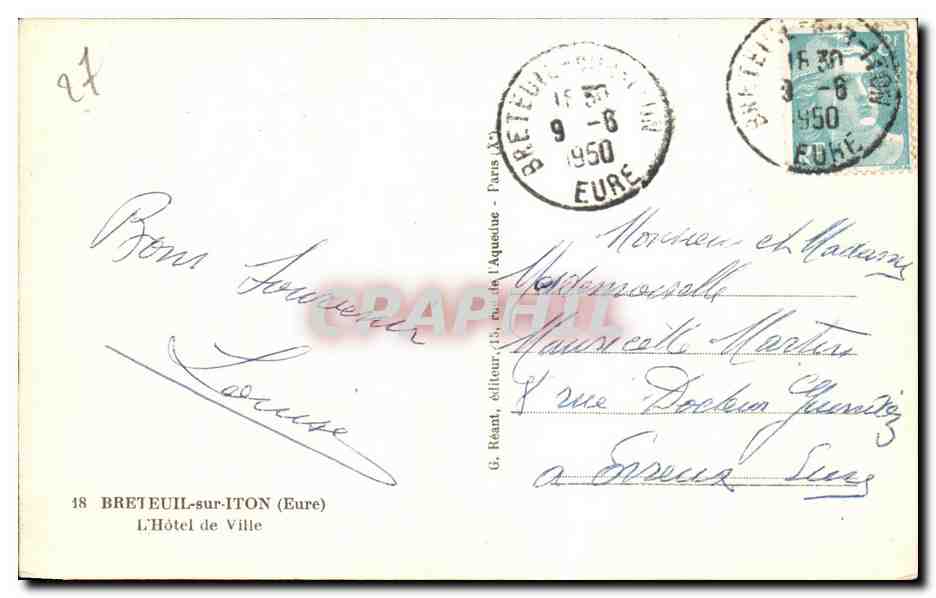 27
BRETEUIL-SUR-ITON
16 30
9 -6
1950
EURE
BRETEUIL-SUR-ITON
16 30
9 -6
1950
EURE
Bons Souvenirs
Louise
G. Réant, éditeur, 15, rue de l'Aqueduc - Paris (Xe)
Monsieur et Madame
Mademoiselle
Mauricette Martin
8 rue Docteur
a Evreux Eure
CRAPHIL
18 BRETEUIL-sur-ITON (Eure)
L'Hôtel de Ville